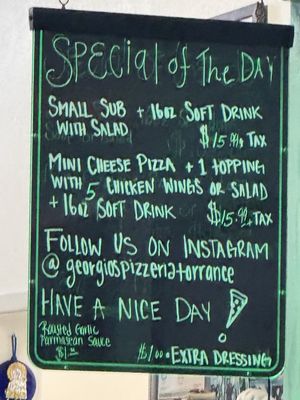 SPECIAL OF THE DAY
SMALL SUB + 16oz SOFT DRINK
WITH SALAD $15.99+ TAX
MINI CHEESE PIZZA + 1 TOPPING
WITH 5 CHICKEN WINGS OR SALAD
+ 16oz SOFT DRINK $15.99+ TAX
FOLLOW US ON INSTAGRAM
@georgiospizzeriatorrance
HAVE A NICE DAY
Roasted Garlic
Parmesean Sauce
$1.00
$1.00 EXTRA DRESSING